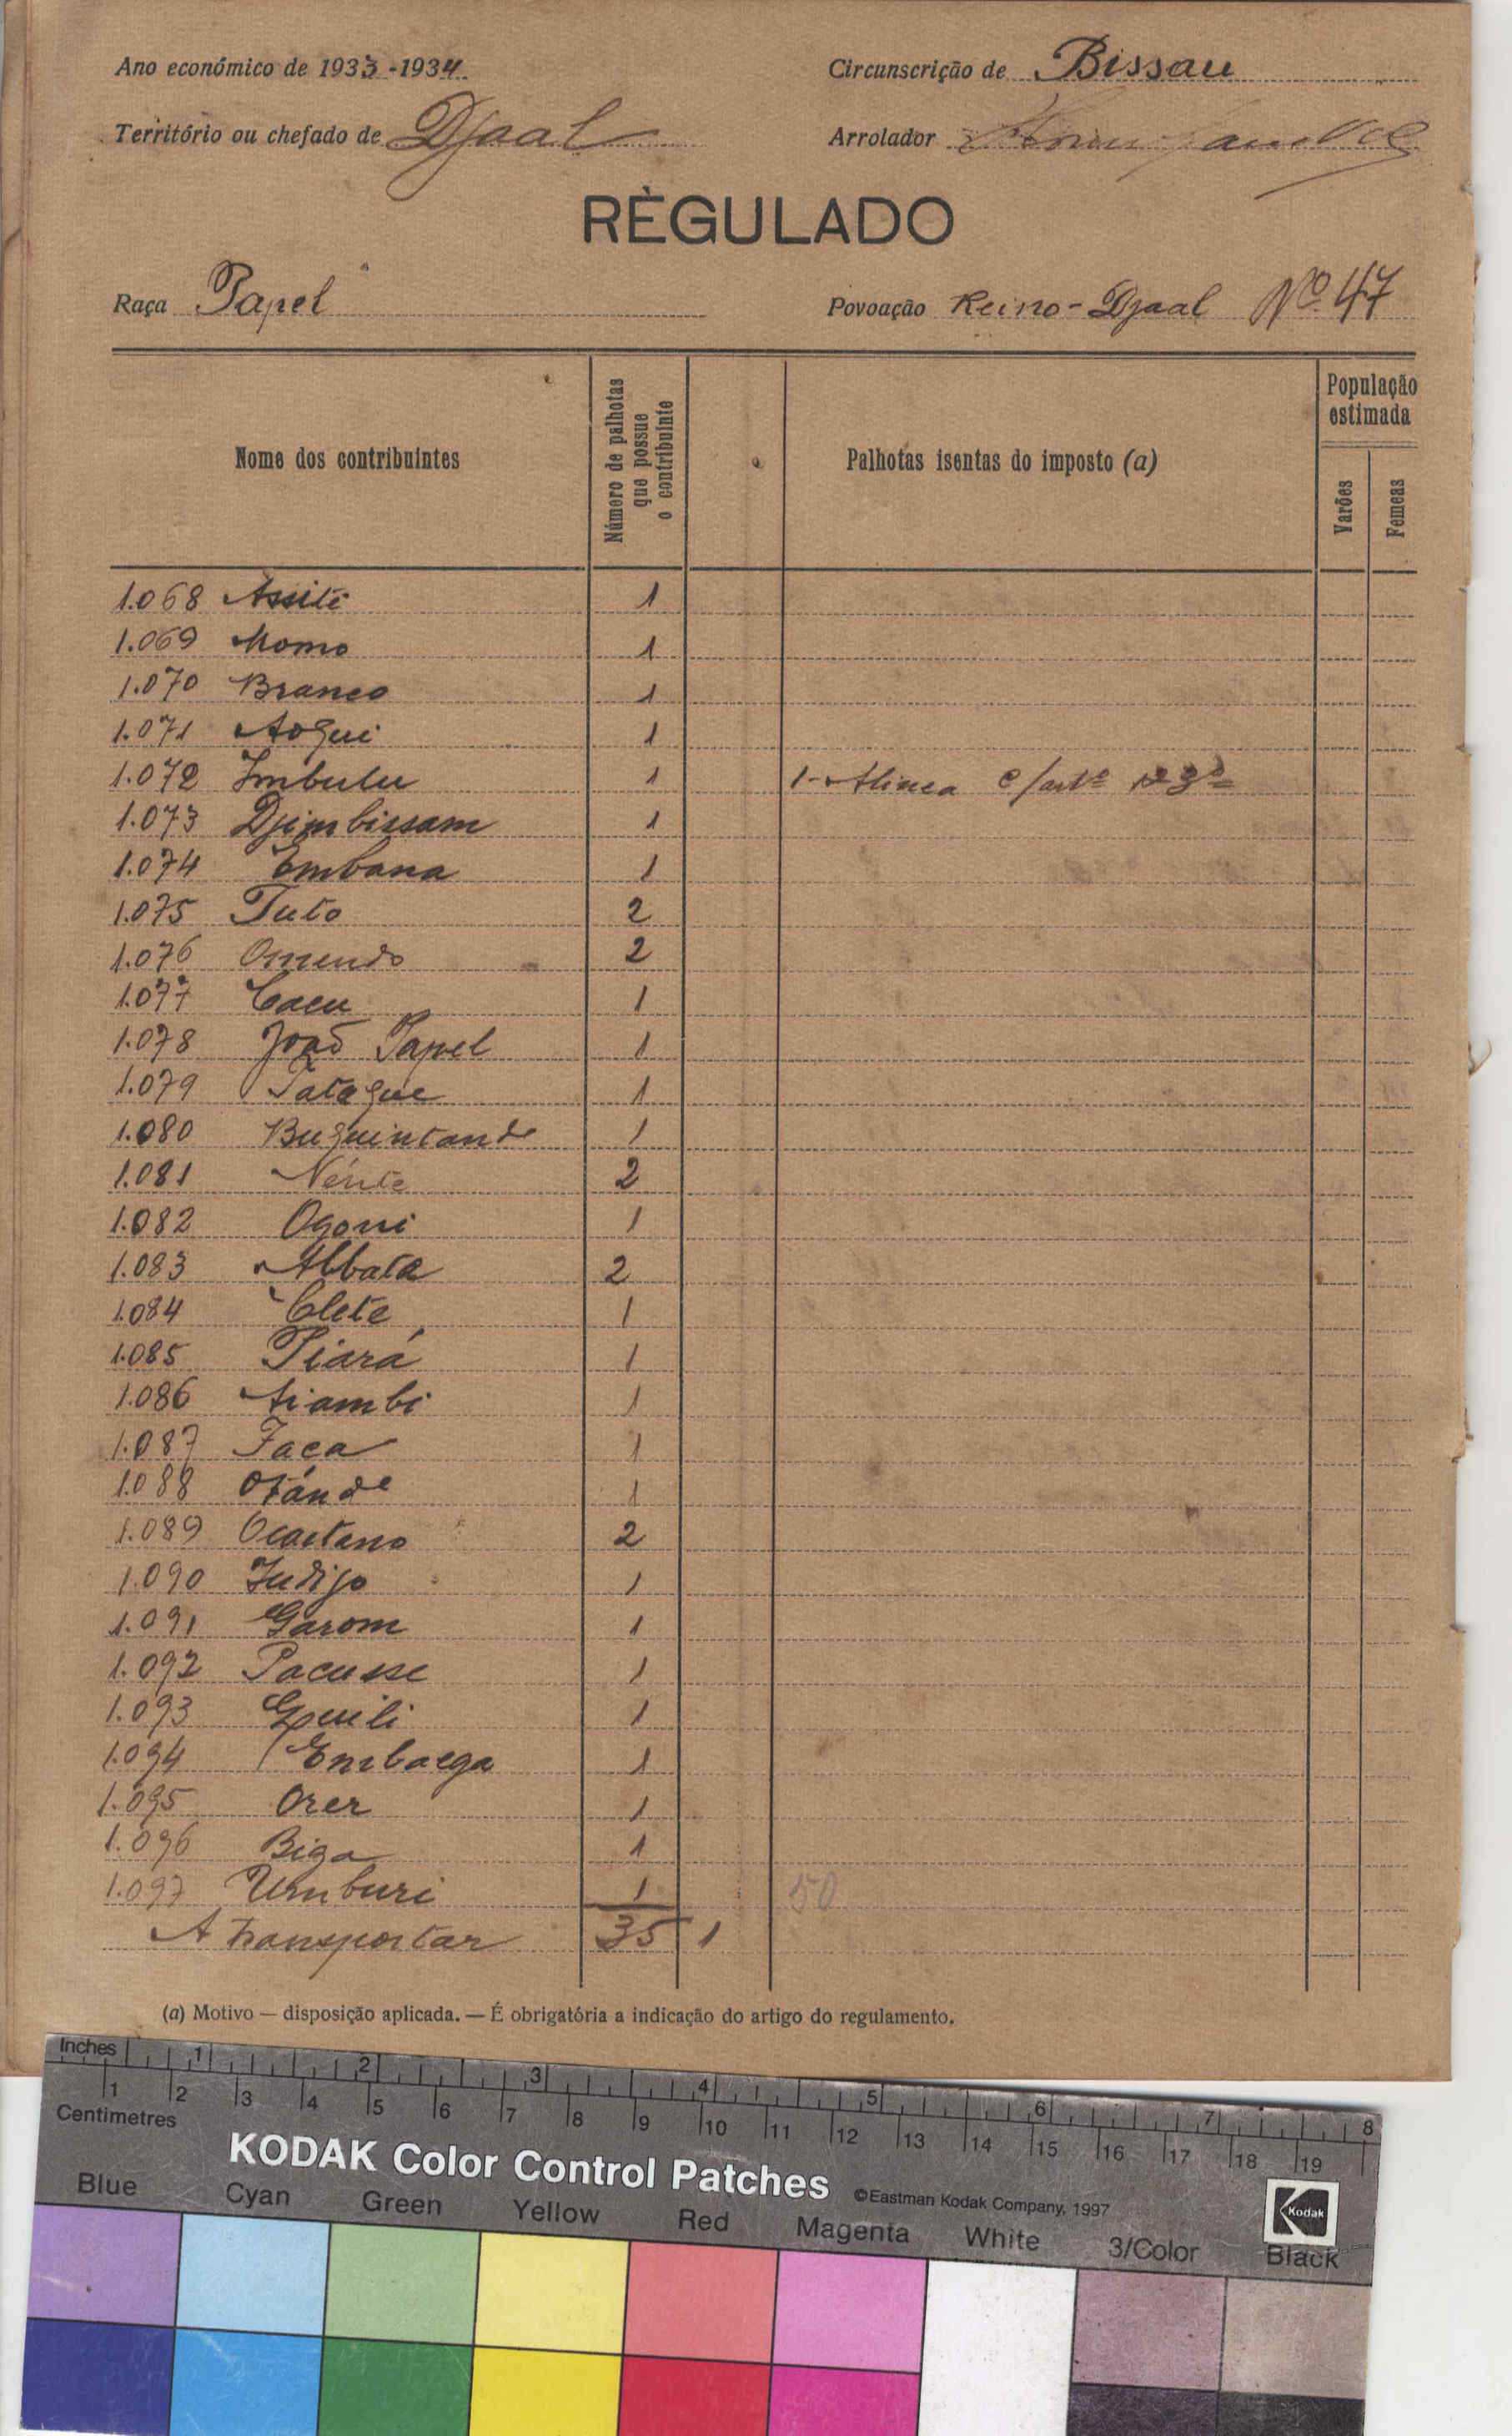 Ano económico de 1933-1934
Circunscrição de Bissau
Território ou chefado de Djaal
Arrolador
RÈGULADO
Raça Papel
Povoação Reino-Djaal Nº 47
Nome dos contribuintes
Número de palhotas que possue o contribuinte
Palhotas isentas do imposto (a)
População estimada
Varões
Femeas
1.068 Assité 1
1.069 Momo 1
1.070 Branco 1
1.071 Aogui 1
1.072 Imbulu 1 1-Alinea c/artº 3º
1.073 Djimbissam 1
1.074 Embana 1
1.075 Tuto 2
1.076 Omendo 2
1.077 Cacu 1
1.078 João Papel 1
1.079 Tatague 1
1.080 Buguintande 1
1.081 Nénte 2
1.082 Ogoni 1
1.083 Abbata 2
1.084 Clete 1
1.085 Piará 1
1.086 Aiambi 1
1.087 Faca 1
1.088 Otánde 1
1.089 Ocaetano 2
1.090 Judijo 1
1.091 Garom 1
1.092 Pacusse 1
1.093 Guili 1
1.094 Embaega 1
1.095 Orer 1
1.096 Biga 1
1.097 Umburi 1 50
A transportar 35 1
(a) Motivo — disposição aplicada. — É obrigatória a indicação do artigo do regulamento.
Inches 1 2 3 4 5 6 7 8
1 2 3 4 5 6 7 8 9 10 11 12 13 14 15 16 17 18 19
Centimetres
KODAK Color Control Patches ©Eastman Kodak Company, 1997
Kodak
Blue Cyan Green Yellow Red Magenta White 3/Color Black